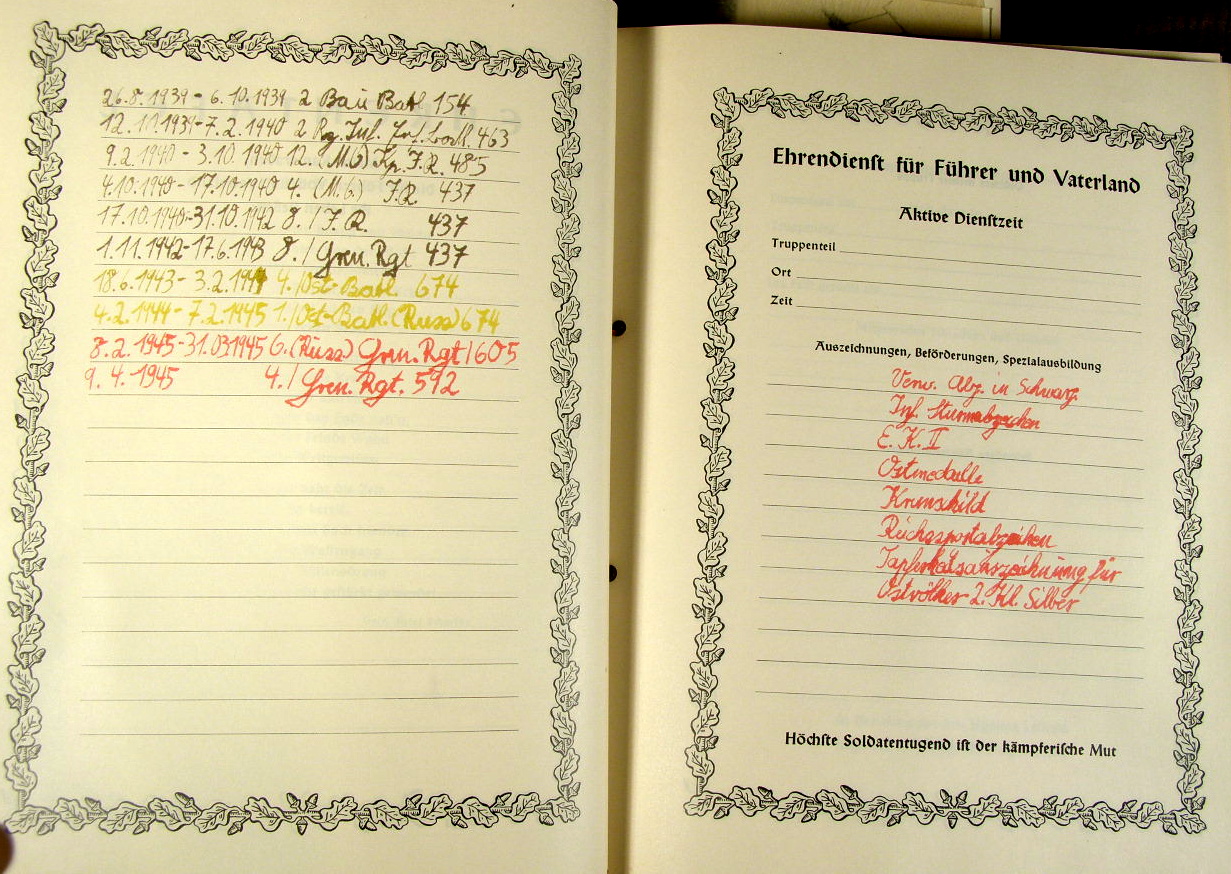 26.8.1939 - 6.10.1939 2 Bau Batl 154
12.10.1939-7.2.1940 2 Inf. 463
9.2.1940 - 3.10.1940 12. (M.G) Kp. I.R. 485
4.10.1940 - 17.10.1940 4. (M.G.) I.R. 437
17.10.1940-31.10.1942 8. / I.R. 437
1.11.1942-17.6.1943 8. / Gren. Rgt 437
18.6.1943 - 3.2.1944 4./Ost-Batl. 674
4.2.1944 - 7.2.1945 1./Ost-Batl. (Russ) 674
8.2.1945-31.03.1945 6. (Russ) Gren. Rgt 1605
9.4.1945 4./ Gren. Rgt. 592
Ehrendienst für Führer und Vaterland
Aktive Dienstzeit
Truppenteil
Ort
Zeit
Auszeichnungen, Beförderungen, Spezialausbildung
Verw. Abz. in Schwarz
Inf. Sturmabzeichen
E. K. II
Ostmedaille
Krimschild
Reichssportabzeichen
Tapferkeitsauszeichnung für
Ostvölker 2. Kl. Silber
Höchste Soldatentugend ist der kämpferische Mut